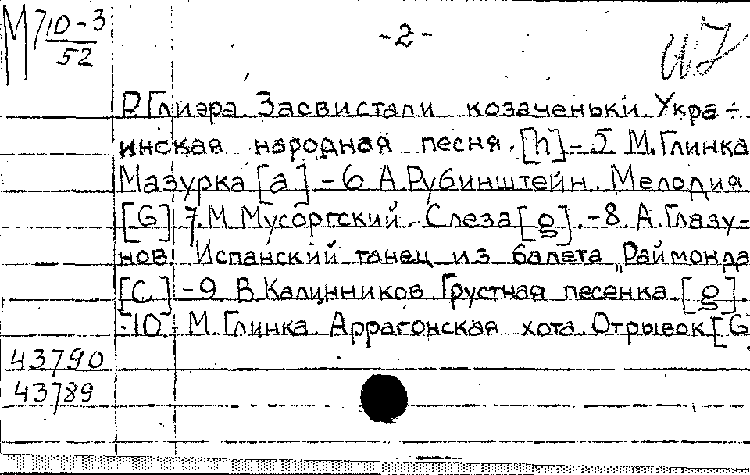 М7 10-3/52
-2-
Р.Глиэра Засвистали козаченьки. Укра-
инская народная песня. [h] - 5 М.Глинка
Мазурка [a] - 6 А.Рубинштейн. Мелодия
[G] 7. М.Мусоргский. Слеза [g]. - 8. А.Глазу-
нов. Испанский танец из балета „Раймонда
[C] - 9 В.Калинников Грустная песенка [g].
-10. М.Глинка. Аррагонская хота. Отрывок [G
43790
43789